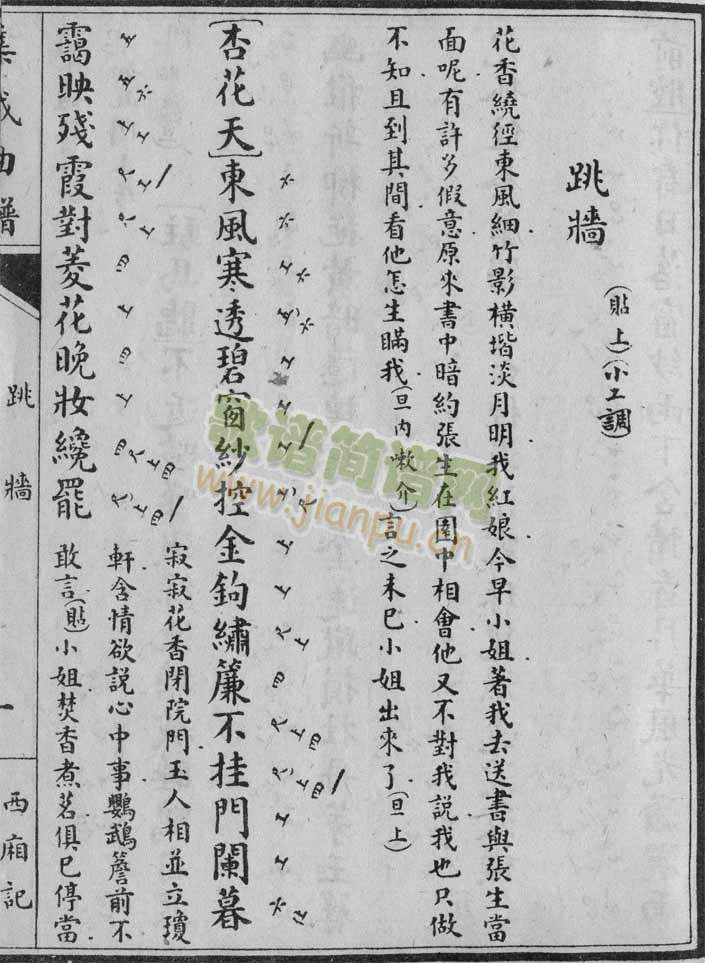 跳牆
（貼上）（小工調）
花香繞徑東風細竹影橫堦淡月明我紅娘今早小姐著我去送書與張生當
面呢有許多假意原來書中暗約張生在園中相會他又不對我說我也只做
不知且到其間看他怎生瞞我（旦內嗽介）言之未已小姐出來了（旦上）
〔杏花天〕東風寒透碧窗紗控金鉤繡簾不挂門闌暮
寂寂花香閉院門玉人相並立瓊
軒含情欲說心中事鸚鵡簷前不
靄映殘霞對菱花晚妝纔罷
敢言（貼）小姐焚香煮茗俱已停當
集成曲譜
跳牆
一
西廂記
歌谱简谱网
www.jianpu.cn